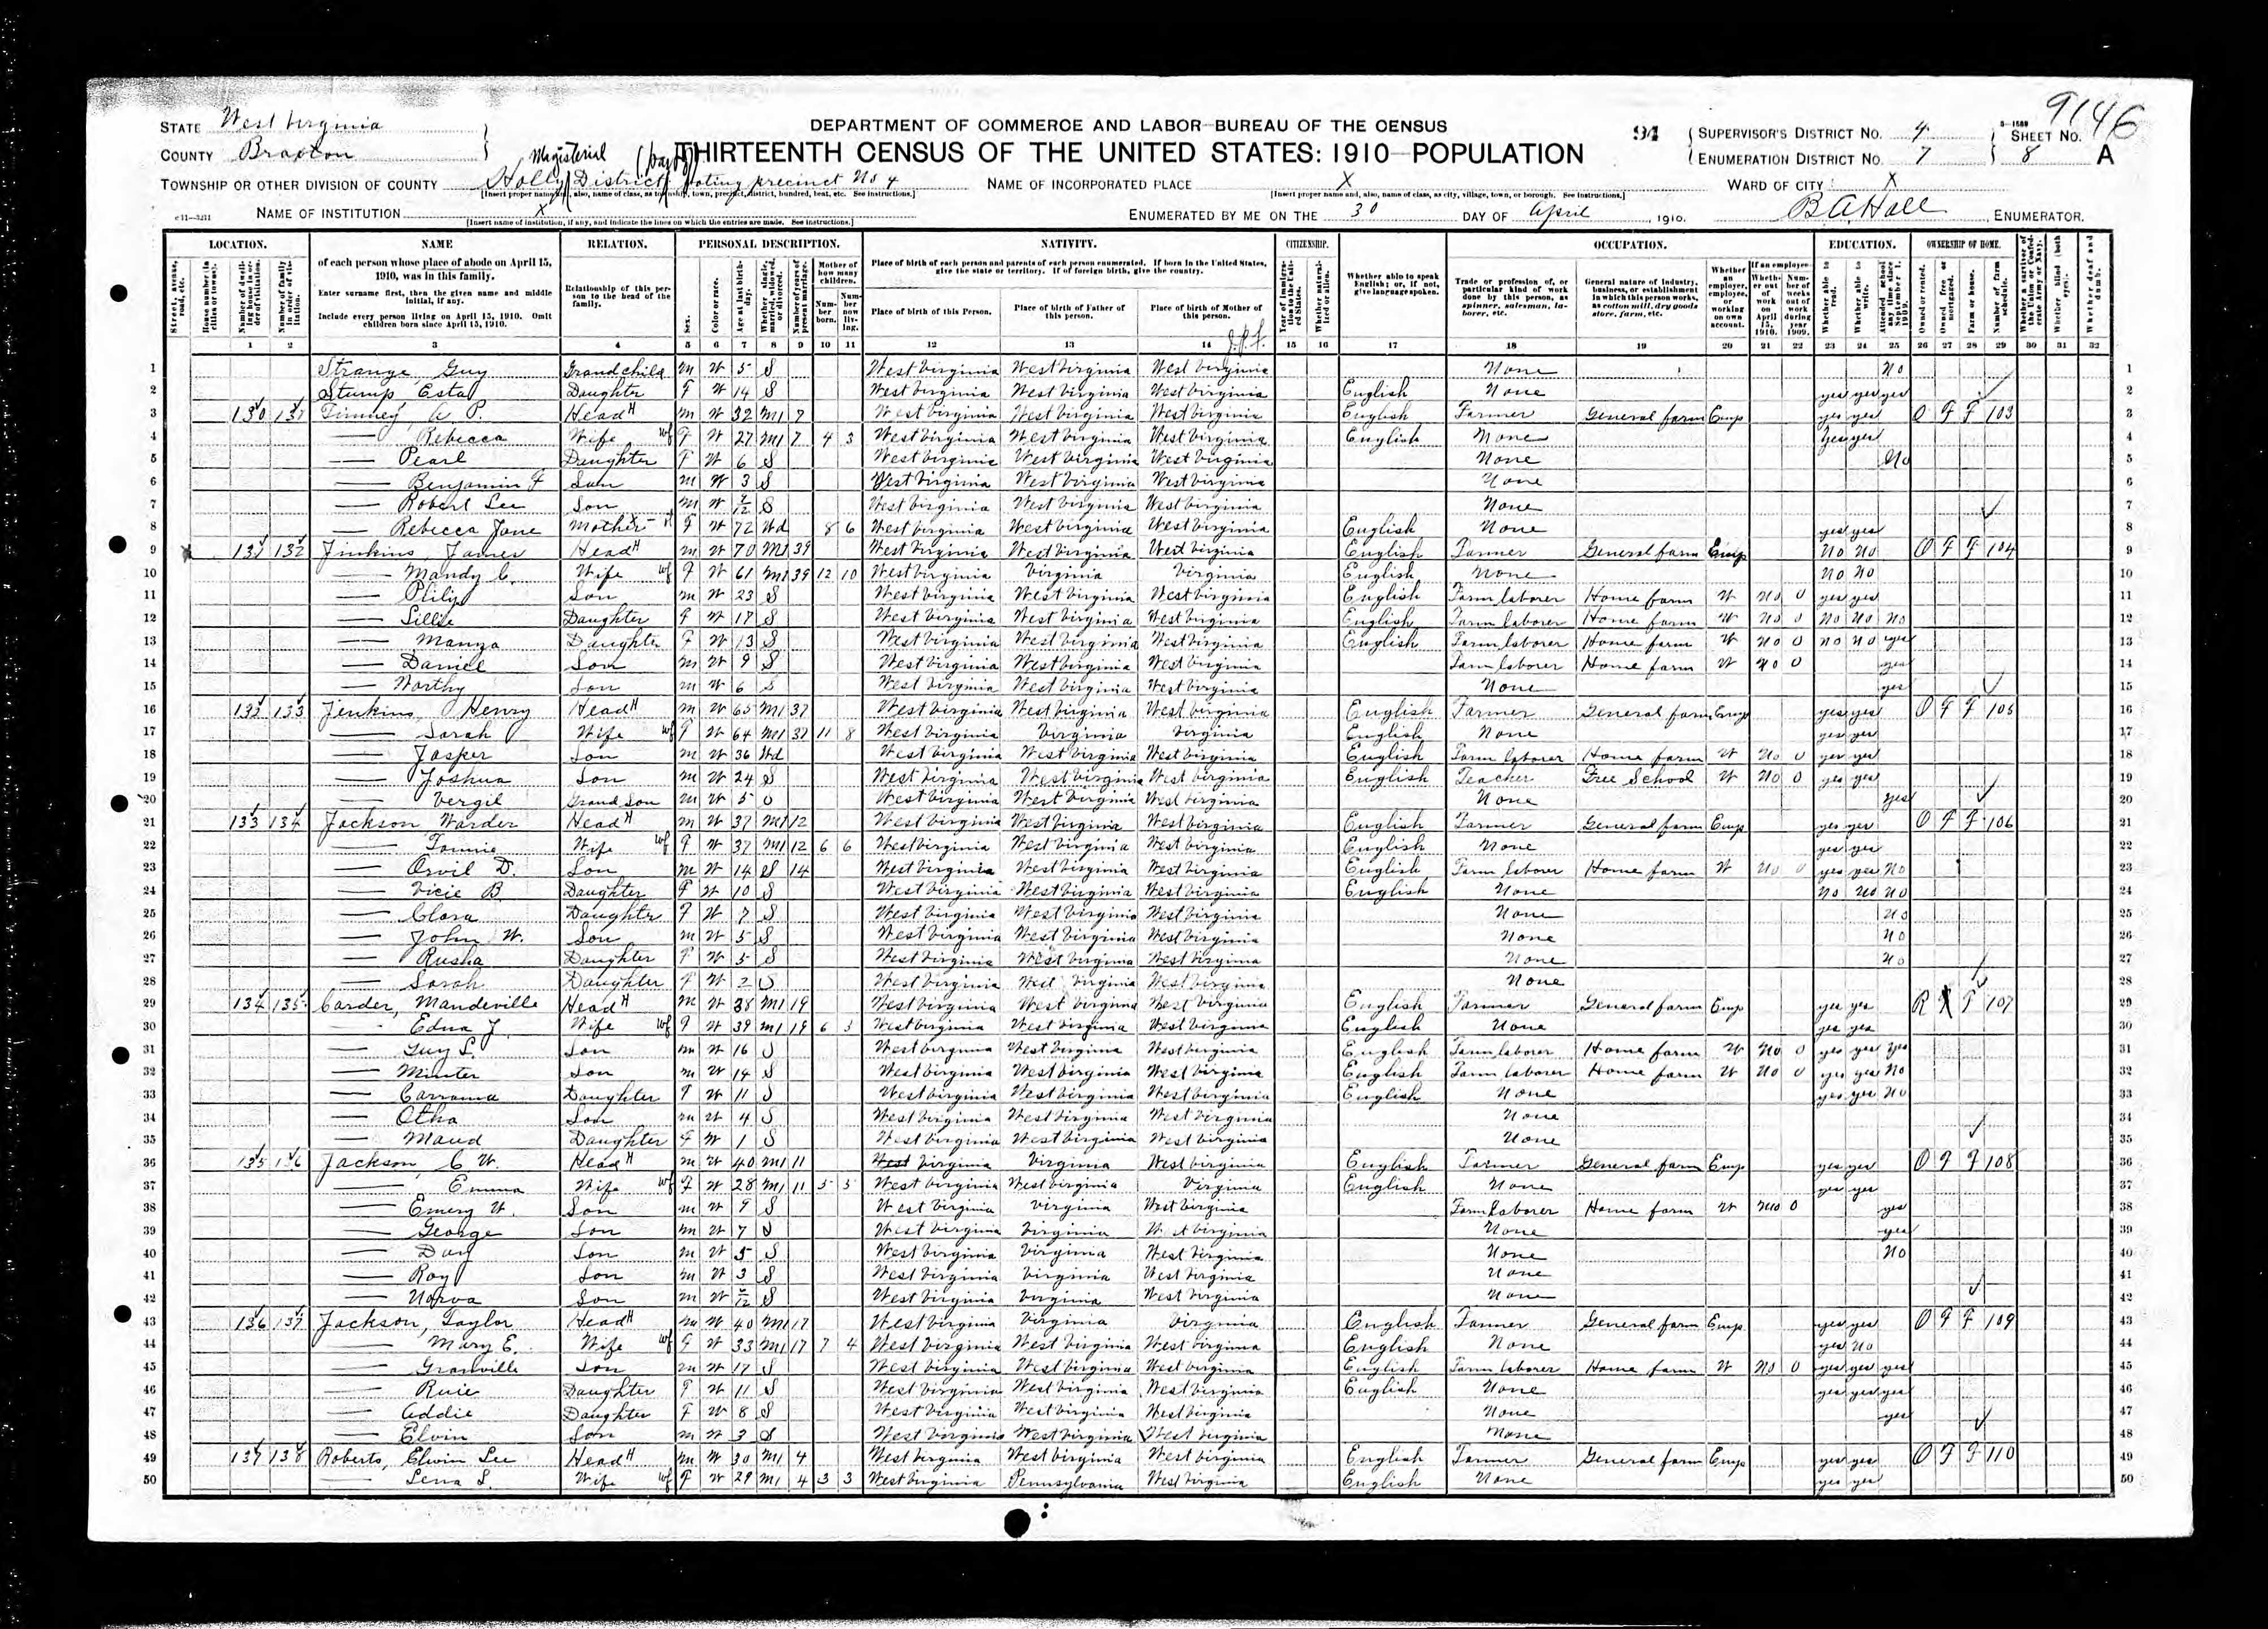 9146
STATE West Virginia
COUNTY Braxton
DEPARTMENT OF COMMERCE AND LABOR—BUREAU OF THE CENSUS
THIRTEENTH CENSUS OF THE UNITED STATES: 1910—POPULATION
94
SUPERVISOR'S DISTRICT No. 4
ENUMERATION DISTRICT No. 7
SHEET No. 8 A
Magisterial (part of)
TOWNSHIP OR OTHER DIVISION OF COUNTY Holly District voting precinct No 4
NAME OF INCORPORATED PLACE X
WARD OF CITY X
NAME OF INSTITUTION X
ENUMERATED BY ME ON THE 30 DAY OF April, 1910. B A Hall, ENUMERATOR.
LOCATION. NAME RELATION. PERSONAL DESCRIPTION. NATIVITY. CITIZENSHIP. OCCUPATION. EDUCATION. OWNERSHIP OF HOME.
of each person whose place of abode on April 15, 1910, was in this family.
Enter surname first, then the given name and middle initial, if any.
Include every person living on April 15, 1910. Omit children born since April 15, 1910.
Relationship of this person to the head of the family.
Place of birth of each person and parents of each person enumerated. If born in the United States, give the state or territory. If of foreign birth, give the country.
Place of birth of this Person. Place of birth of Father of this person. Place of birth of Mother of this person.
Whether able to speak English; or, if not, give language spoken.
1 2 3 4 5 6 7 8 9 10 11 12 13 14 15 16 17 18 19 20 21 22 23 24 25 26 27 28 29 30 31 32
1 Strange, Guy Grandchild m W 5 S West Virginia West Virginia West Virginia None No
2 Stump, Esta Daughter F W 14 S West Virginia West Virginia West Virginia English None yes yes yes
3 130 131 A. P. Head m W 32 M1 7 West Virginia West Virginia West Virginia English Farmer General farm Emp yes yes O F F 103
4 — Rebecca Wife F W 27 M1 7 4 3 West Virginia West Virginia West Virginia English None yes yes
5 — Pearl Daughter F W 6 S West Virginia West Virginia West Virginia None No
6 — Benjamin F Son m W 3 S West Virginia West Virginia West Virginia None
7 — Robert Lee Son m W S West Virginia West Virginia West Virginia None
8 — Rebecca Jane Mother F W 72 Wd 8 6 West Virginia West Virginia West Virginia English None yes yes
9 131 132 Jinkins, James Head m W 70 M1 39 West Virginia West Virginia West Virginia English Farmer General farm Emp No No O F F 104
10 — Mandy C. Wife F W 61 M1 39 12 10 West Virginia Virginia Virginia English None No No
11 — Son m W 23 S West Virginia West Virginia West Virginia English Farm laborer Home farm W No 0 yes yes
12 — Lillie Daughter F W 17 S West Virginia West Virginia West Virginia English Farm laborer Home farm W No 0 No No No
13 — Daughter F W 13 S West Virginia West Virginia West Virginia English Farm laborer Home farm W No 0 no No yes
14 — Daniel Son m W 9 S West Virginia West Virginia West Virginia Farm laborer Home farm W No 0 yes
15 — Worthy Son m W 6 S West Virginia West Virginia West Virginia None yes
16 132 133 Jenkins, Henry Head m W 65 M1 37 West Virginia West Virginia West Virginia English Farmer General farm Emp yes yes O F F 105
17 — Sarah Wife F W 64 M1 37 11 8 West Virginia Virginia Virginia English None yes yes
18 — Jasper Son m W 36 Wd West Virginia West Virginia West Virginia English Farm laborer Home farm W No 0 yes yes
19 — Joshua Son m W 24 S West Virginia West Virginia West Virginia English Teacher Free School W No 0 yes yes
20 — Vergil Grand Son m W 5 West Virginia West Virginia West Virginia None yes
21 133 134 Jackson Warder Head m W 37 M1 12 West Virginia West Virginia West Virginia English Farmer General farm Emp yes yes O F F 106
22 — Wife F W 37 M1 12 6 6 West Virginia West Virginia West Virginia English None yes yes
23 — Orvil D. Son m W 14 S 14 West Virginia West Virginia West Virginia English Farm laborer Home farm W No 0 yes yes No
24 — Vicie B Daughter F W 10 S West Virginia West Virginia West Virginia English None No No No
25 — Clara Daughter F W 7 S West Virginia West Virginia West Virginia None No
26 — John W. Son m W 5 S West Virginia West Virginia West Virginia None No
27 — Daughter F W 5 S West Virginia West Virginia West Virginia None No
28 — Sarah Daughter F W 2 S West Virginia West Virginia West Virginia None
29 134 135 Carder, Mandeville Head m W 38 M1 19 West Virginia West Virginia West Virginia English Farmer General farm Emp yes yes R F 107
30 Edna J. Wife F W 39 M1 19 6 3 West Virginia West Virginia West Virginia English None yes yes
31 — Guy S. Son m W 16 S West Virginia West Virginia West Virginia English Farm laborer Home farm W No 0 yes yes yes
32 — Minter Son m W 14 S West Virginia West Virginia West Virginia English Farm laborer Home farm W No 0 yes yes No
33 — Daughter F W 11 S West Virginia West Virginia West Virginia English None yes yes No
34 — Otha Son m W 4 S West Virginia West Virginia West Virginia None
35 — Maud Daughter F W 1 S West Virginia West Virginia West Virginia None
36 135 136 Jackson, C W. Head m W 40 M1 11 Virginia Virginia West Virginia English Farmer General farm Emp yes yes O F F 108
37 — Emma Wife F W 28 M1 11 5 5 West Virginia West Virginia Virginia English None yes yes
38 — Emery W. Son m W 9 S West Virginia Virginia West Virginia Farm laborer Home farm W No 0 yes
39 — George Son m W 7 S West Virginia Virginia West Virginia None yes
40 — Son m W 5 S West Virginia Virginia West Virginia None No
41 — Roy Son m W 3 S West Virginia Virginia West Virginia None
42 — Norva Son m W S West Virginia Virginia West Virginia None
43 136 137 Jackson, Taylor Head m W 40 M1 17 West Virginia Virginia Virginia English Farmer General farm Emp yes yes O F F 109
44 — Mary E. Wife F W 33 M1 17 7 4 West Virginia West Virginia West Virginia English None yes No
45 — Granville Son m W 17 S West Virginia West Virginia West Virginia English Farm laborer Home farm W No 0 yes yes yes
46 — Ruie Daughter F W 11 S West Virginia West Virginia West Virginia English None yes yes yes
47 — Addie Daughter F W 8 S West Virginia West Virginia West Virginia None yes
48 — Elvin Son m W S West Virginia West Virginia West Virginia None
49 137 138 Roberts, Elwin Lee Head m W 30 M1 4 West Virginia West Virginia West Virginia English Farmer General farm Emp yes yes O F F 110
50 — Lena S. Wife F W 29 M1 4 3 3 West Virginia Pennsylvania West Virginia English None yes yes